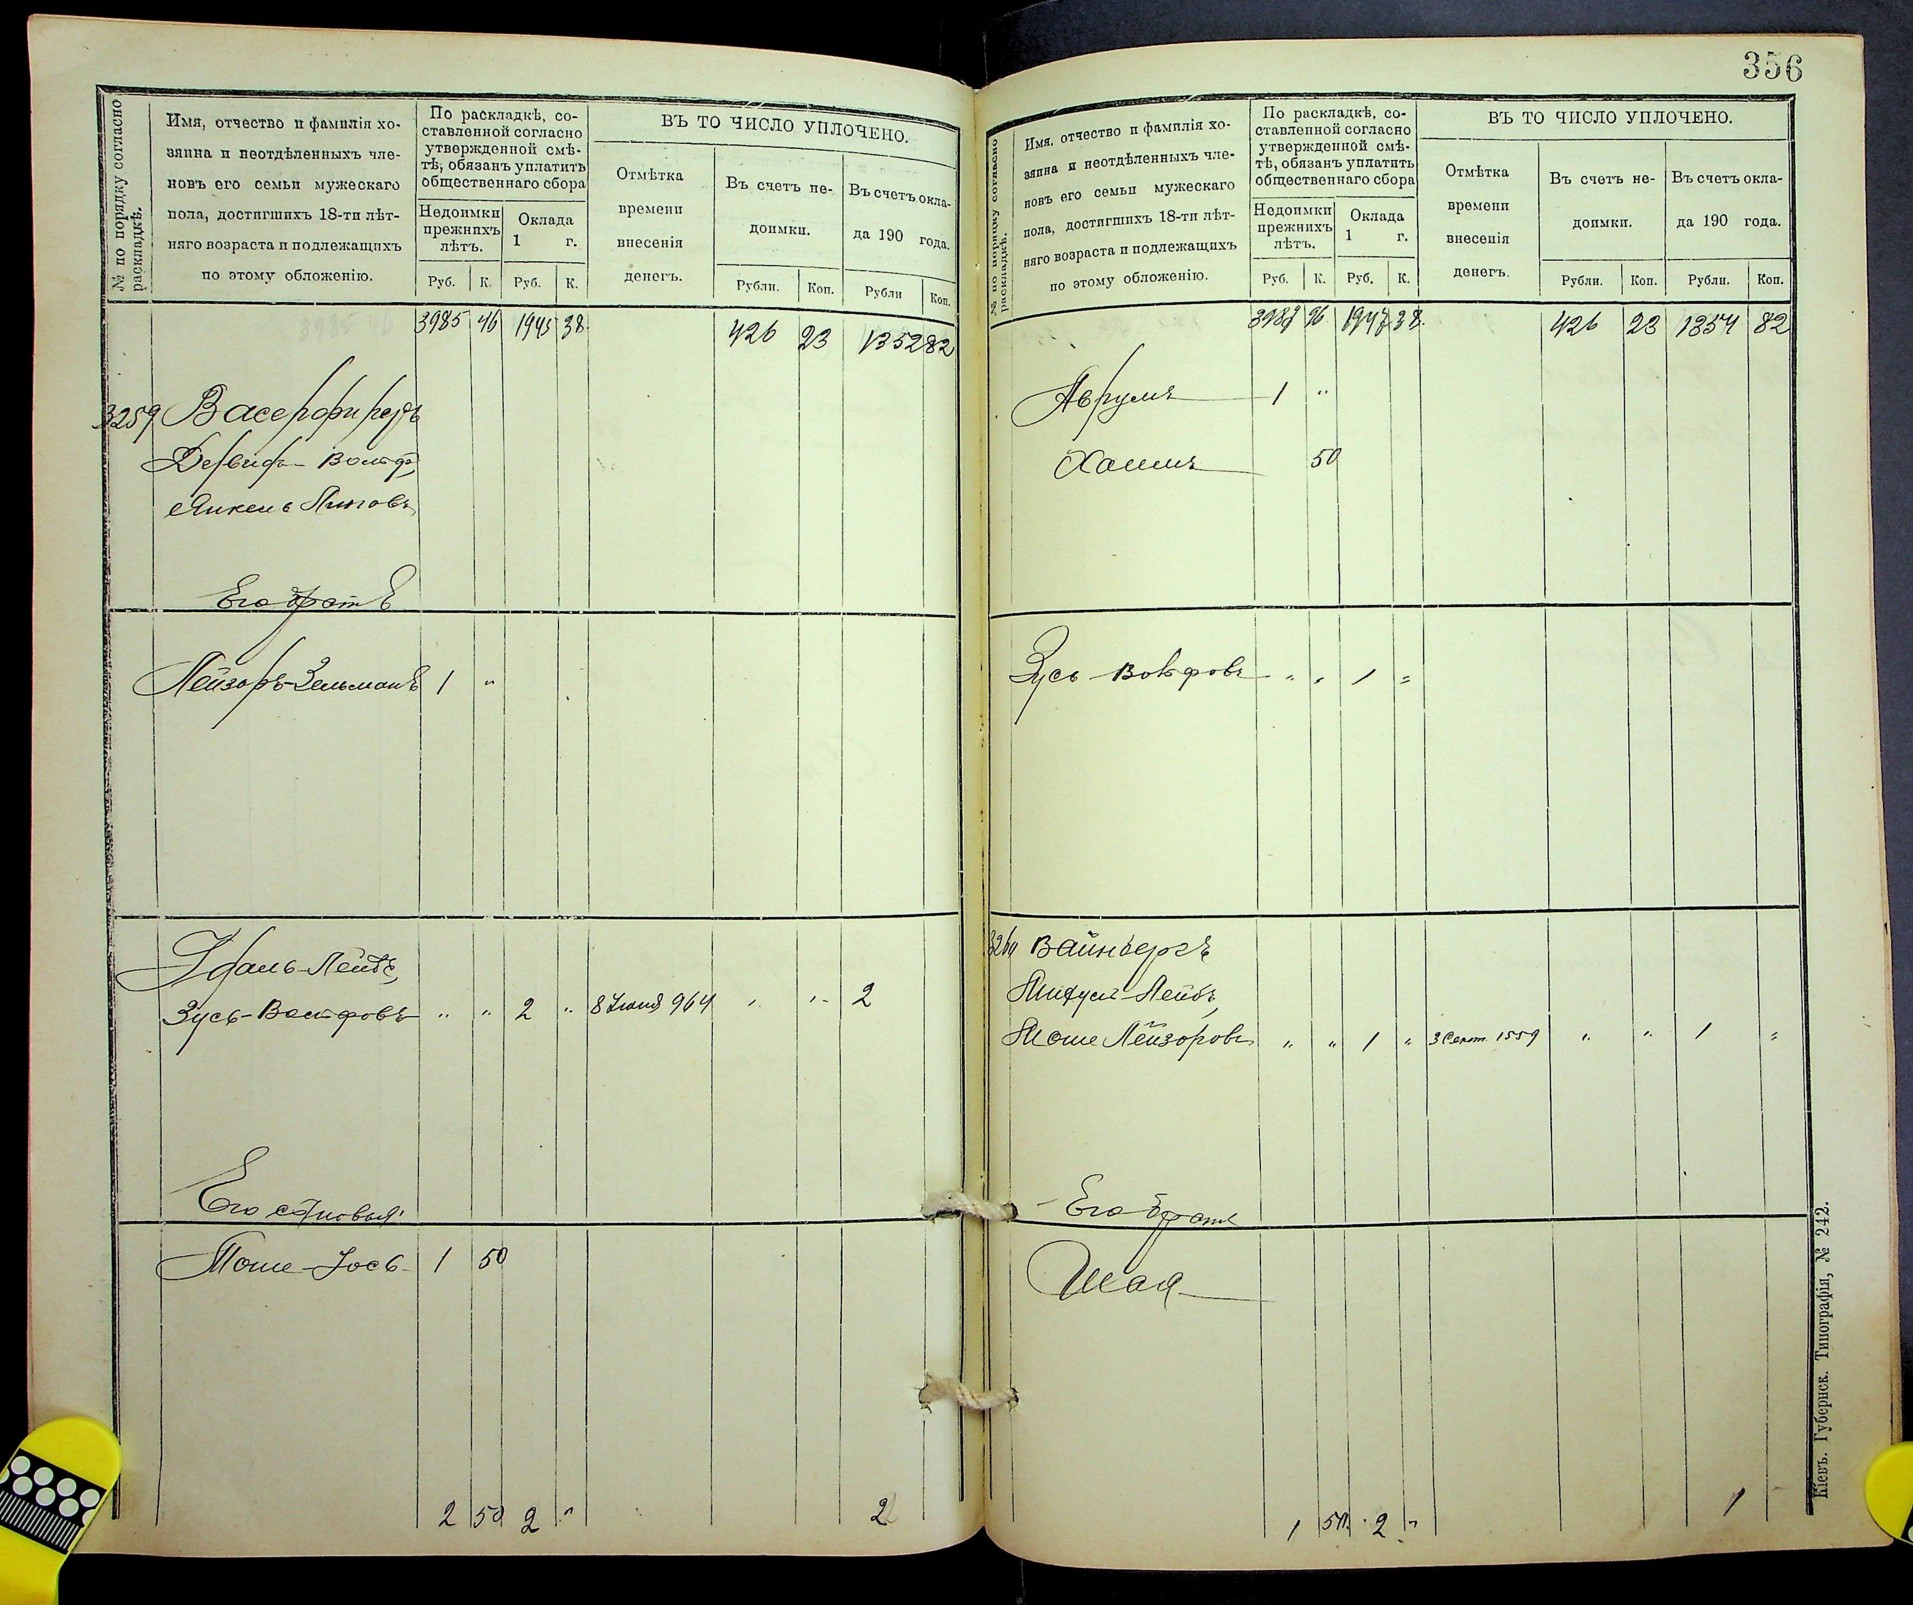 356
№ по порядку согласно раскладкѣ.
Имя, отчество и фамилія хо-
зяина и неотдѣленныхъ чле-
новъ его семьи мужескаго
пола, достигшихъ 18-ти лѣт-
няго возраста и подлежащихъ
по этому обложенію.
По раскладкѣ, со-
ставленной согласно
утвержденной смѣ-
тѣ, обязанъ уплатить
общественнаго сбора
Недоимки
прежнихъ
лѣтъ.
Оклада
1 г.
Руб. К. Руб. К.
ВЪ ТО ЧИСЛО УПЛОЧЕНО.
Отмѣтка
времени
внесенія
денегъ.
Въ счетъ не-
доимки.
Въ счетъ окла-
да 190 года.
Рубли. Коп. Рубли Коп.
3985 46 1945 38 426 23 1352 82
3259 Васерфирсдъ
Янкель
Его братъ
Лейзоръ-Зельманъ 1 "
Лейбъ,
Зусь-Вольфовъ " " 2 " 8 Іюня 964 " " 2
Его сыновья:
Мошe-Іось 1 50
2 50 2 " 2
№ по порядку согласно раскладкѣ.
Имя, отчество и фамилія хо-
зяина и неотдѣленныхъ чле-
новъ его семьи мужескаго
пола, достигшихъ 18-ти лѣт-
няго возраста и подлежащихъ
по этому обложенію.
По раскладкѣ, со-
ставленной согласно
утвержденной смѣ-
тѣ, обязанъ уплатить
общественнаго сбора
Недоимки
прежнихъ
лѣтъ.
Оклада
1 г.
Руб. К. Руб. К.
ВЪ ТО ЧИСЛО УПЛОЧЕНО.
Отмѣтка
времени
внесенія
денегъ.
Въ счетъ не-
доимки.
Въ счетъ окла-
да 190 года.
Рубли. Коп. Рубли. Коп.
3987 96 1947 38 426 23 1354 82
Аврумъ 1 "
Хаимъ 50
Зусь-Вольфовъ " " 1 "
3260 Вайнбергъ
Лейбъ,
Мошe Лейзоровъ " " 1 " 3 Сент. 1559 " " 1 "
Его братъ
Шая
1 50 2 " 1
Кіевъ. Губернск. Типографія, № 242.